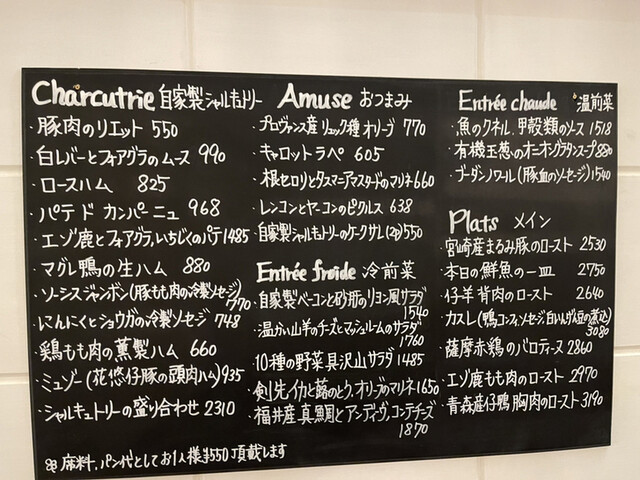 Charcutrie 自家製シャルキュトリー
・豚肉のリエット 550
・白レバーとフォアグラのムース 990
・ロースハム 825
・パテ ド カンパーニュ 968
・エゾ鹿とフォアグラ、いちじくのパテ 1485
・マグレ鴨の生ハム 880
・ソーシスジャンボン(豚もも肉の冷製ソセージ)
770
・にんにくとショウガの冷製ソセージ 748
・鶏もも肉の薫製ハム 660
・ミュゾー(花悠仔豚の頭肉ハム) 935
・シャルキュトリーの盛り合わせ 2310
※席料、パン代としてお1人様¥550頂載します
Amuse おつまみ
・プロヴァンス産 リュック種 オリーブ 770
・キャロットラペ 605
・根セロリとタスマニアマスタードのマリネ 660
・レンコンとヤーコンのピクルス 638
・自家製シャルキュトリーのケークサレ(2P) 550
Entrée froide 冷前菜
・自家製ベーコンと砂肝のリヨン風サラダ
1540
・温かい山羊のチーズとマッシュルームのサラダ
1760
・10種の野菜具沢山サラダ 1485
・剣先イカと蕗のとう、オリーブのマリネ 1650
・福井産真鯛とアンディヴ、コンテチーズ
1870
Entrée chaude 温前菜
・魚のクネル、甲殻類のソース 1518
・有機玉葱のオニオングラタンスープ 880
・ブーダンノワール(豚血のソセージ) 1540
Plats メイン
・宮崎産まるみ豚のロースト 2530
・本日の鮮魚の一皿 2750
・仔羊背肉のロースト 2640
・カスレ(鴨コンフィ、ソセージ、白いんげん豆の煮込)
3080
・薩摩赤鶏のバロティーヌ 2860
・エゾ鹿もも肉のロースト 2970
・青森産仔鴨胸肉のロースト 3190